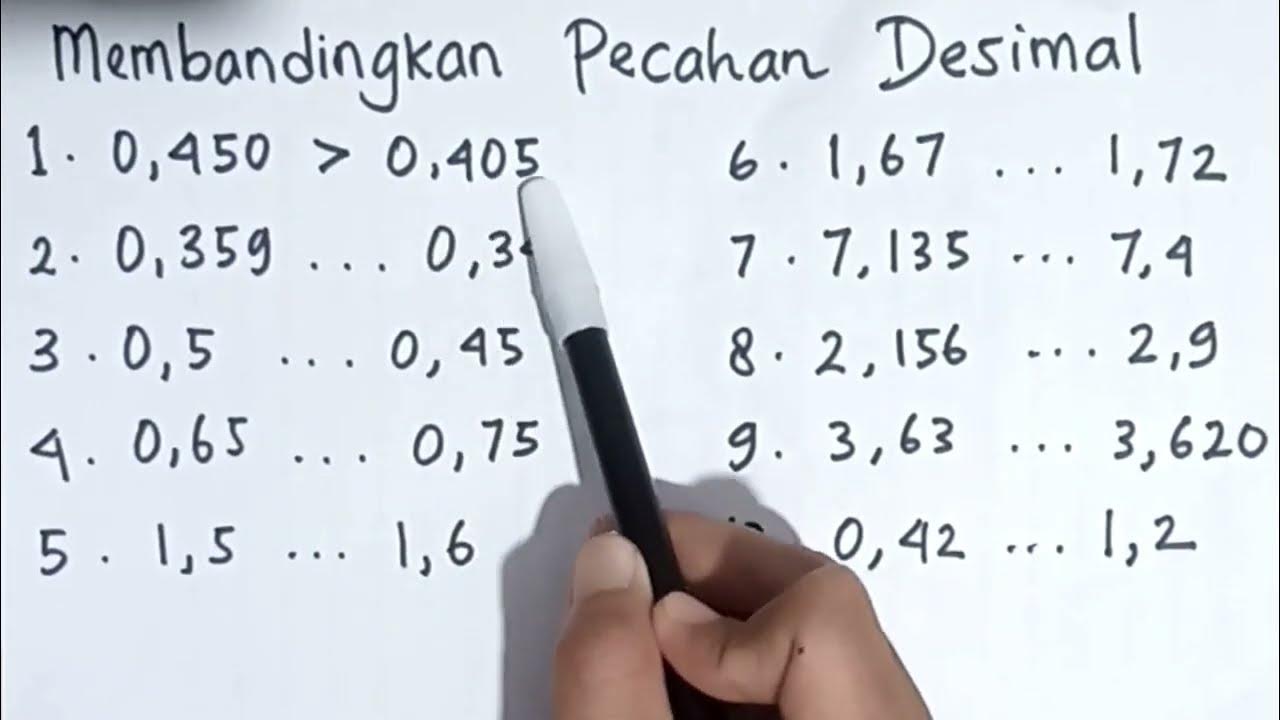 Membandingkan Pecahan Desimal
1. 0,450 > 0,405
2. 0,359 ...
3. 0,5 ... 0,45
4. 0,65 ... 0,75
5. 1,5 ... 1,6
6. 1,67 ... 1,72
7. 7,135 ... 7,4
8. 2,156 ... 2,9
9. 3,63 ... 3,620
0,42 ... 1,2